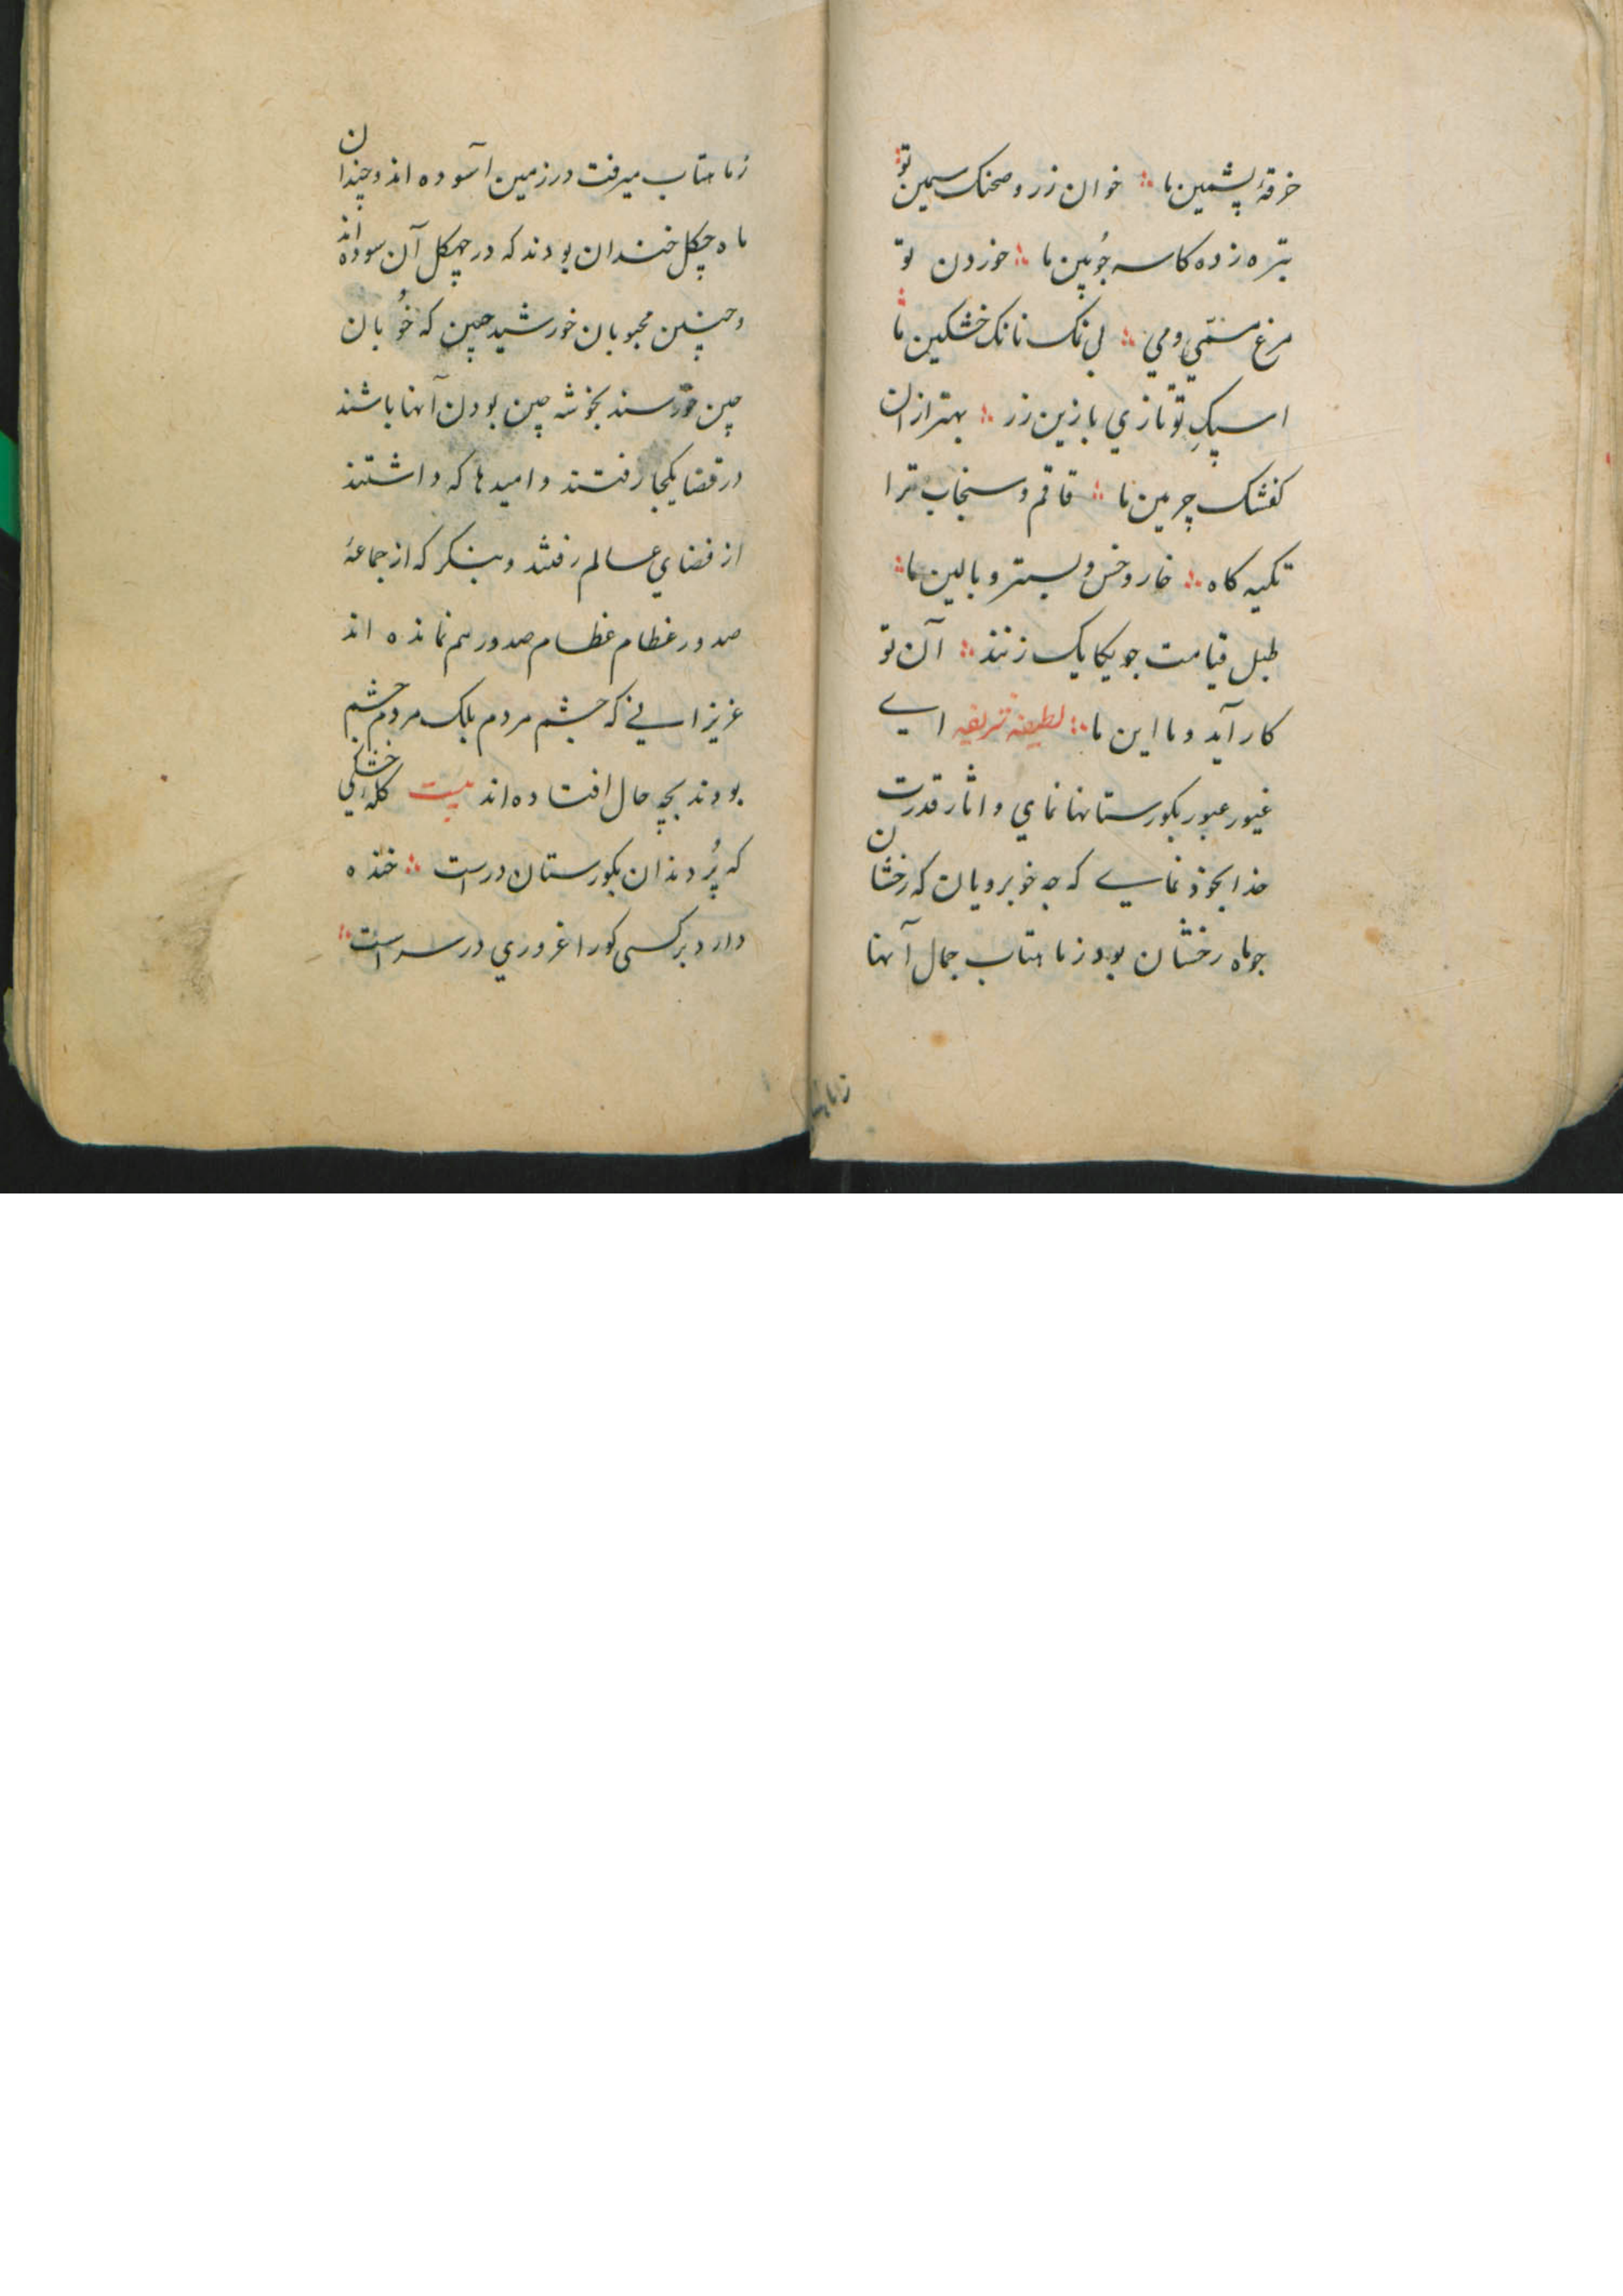 خرقهٔ پشمین ما ؞ خوان زر و صحنک سیمین تو
تبره زده کاسه چوبین ما ؞ خوردن تو
مرغ مسمّی ومی ؞ بی نمک نانک خشکین ما
اسپکِ تو تازی با زین زر ؞ بهتر ازان
کفشک چرمین ما ؞ قاقم و سنجاب ترا
تکیه کاه ؞ خار و خس و بستر و بالین ما ؞
طبل قیامت چو یکایک زنند ؞ آن تو
کار آید و یا این ما ؞ لطیفه شریفه ای
غیور عبور بکورستانها نمای و اثار قدرت
خدا بخود نمایی که چه خوبرویان که رخشان
چو ماه رخشان بود ز ماهتاب جمال آنها
ز ماهتا
ز ماهتاب میرفت در زمین آسوده اند و چندان
ماه چکل خندان بودند که در چهکل آن سوده اند
و چنین محبوبان خورشید جبین که خُوبان
چین خورسند بخوشه چین بودن آنها باشند
در قضا یکجا رفتند و امیدها که داشتند
از فضای عالم رفتند و بنکر که از جماعهٔ
صدور عظام عظام صدور هم نمانده اند
عزیزانی که چشم مردم بلک مردم چشم
بودند بچه حال افتاده اند بیت کلهٔ خشکی
که پُر دندان بکورستان درست ؞ خنده
دارد بر کسی کورا غروری در سراست ؞